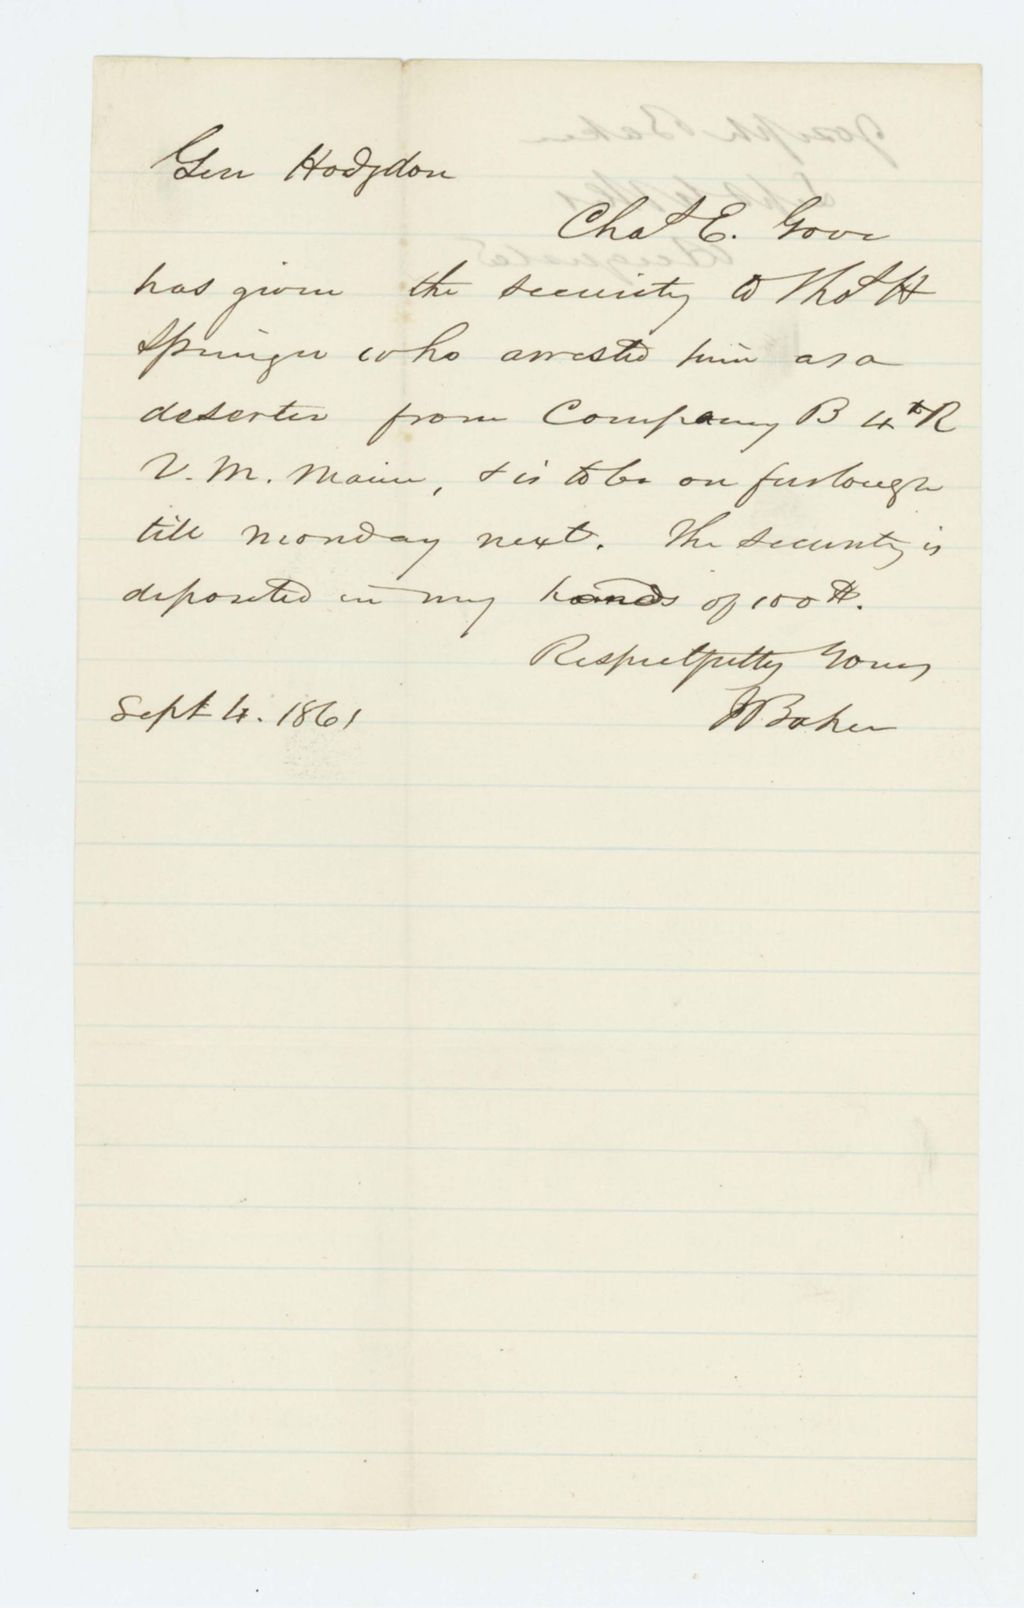 Gen Hodgdon
Chas E. Gove
has given the security to Thos H
Springer who arrested him as a
deserter from Company B 4th R
V. M. Maine, & is to be on furlough
till Monday next. The security is
deposited in my hands of 100 $.
Respectfully Yours
J Baker
Sept 4. 1861
Joseph Baker
Sept 4 1861
Augusta